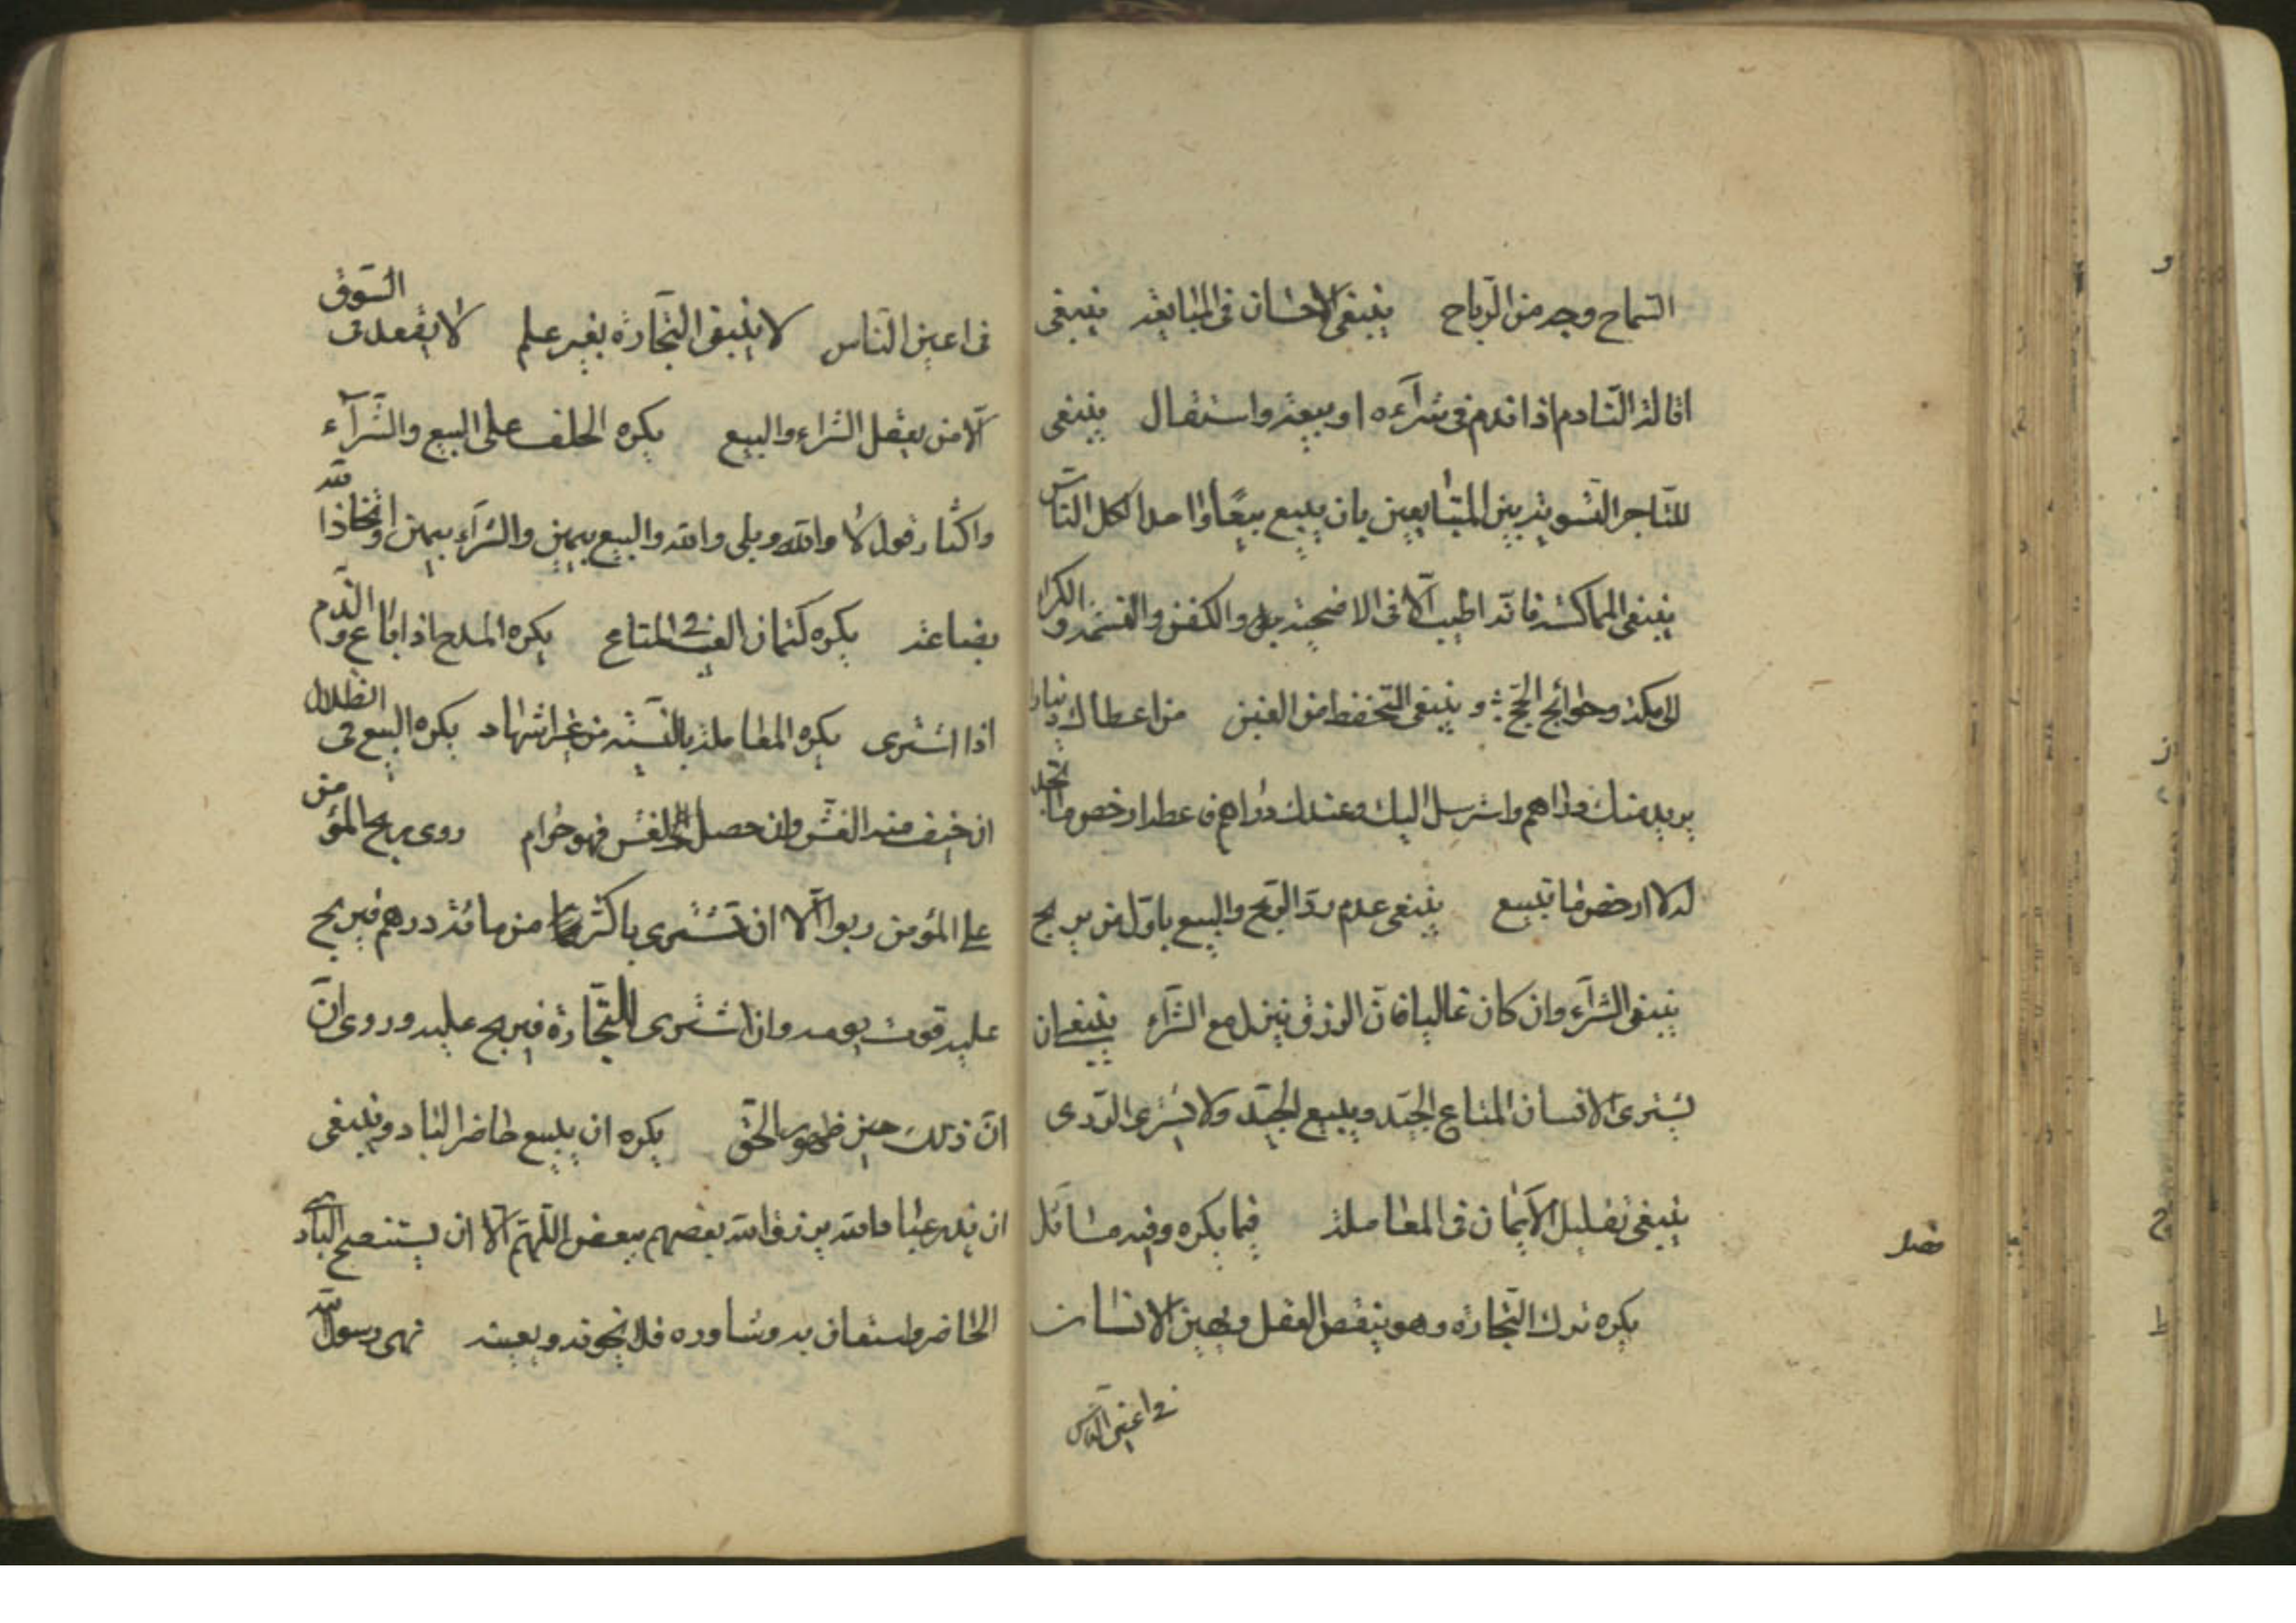 السّماح وجه من الرّباح ينبغى الاحسان فى المبايعة ينبغى
اقالة النّادم اذا ندم فى شرآءه او بيعه واستقال ينبغى
للتّاجر التّسوية بين المتبايعين بان يبيع بيعًا واحدا لكل النّاس
ينبغى المماكسة فانّه اطيب الّا فى الاضحية والكفن والنسمة والكرا
الى مكة وحوائج الحجّ و ينبغى التحفظ من الغبن من اعطاك دنيارا
يريد منك دراهم وارسل اليك وعندك دراهم فاعطه ارخص ما تجد
له لا ارخص ما تبيع ينبغى عدم ردّ الرّبح والبيع باوّل من يربح
ينبغى الشرآء وان كان غاليا فانّ الرزق ينزل مع الشرآء ينبغى ان
يشترى الانسان المتاع الجيّد ويبيع الجيّد ولا يشترى الرّدى
ينبغى تقليل الأيمان فى المعاملة فيما يكره وفيه مسائل
فصل
يكره ترك التّجارة وهو ينقص العقل ويهين الانسان
فى اعين النّاس
فى اعين النّاس لا ينبغى التّجارة بغير علم لا يقعد فى السّوق
الّا من يعقل الشراء والبيع يكره الحلف على البيع والشّرآء
واكثار قول لا والله وبلى والله والبيع بيمين والشرآء بيمين واتخاذ الله
بضاعة يكره كتمان العيب فى المتاع يكره المدح اذا باع والذّم
اذا اشترى يكره المعاملة بالنسيّة من غير اشهاد يكره البيع فى الظلال
ان خيف منه الغشّ وان حصل الغش فهو حرام روى ربح المؤمن
على المؤمن ربوا الّا ان تشترى باكثر من مائة درهم فيربح
عليه قوت يومه وان اشترى للتّجارة فيربح عليه وروى انّ
انّ ذلك حين ظهور الحق يكره ان يبيع حاضر لباد وينبغى
ان يدع عباد الله يرزق الله بعضهم ببعض اللّهمّ الّا ان يستنصح البادى
الحاضر واستعان به وشاوره فلا يخونه ويعينه نهى رسول الله